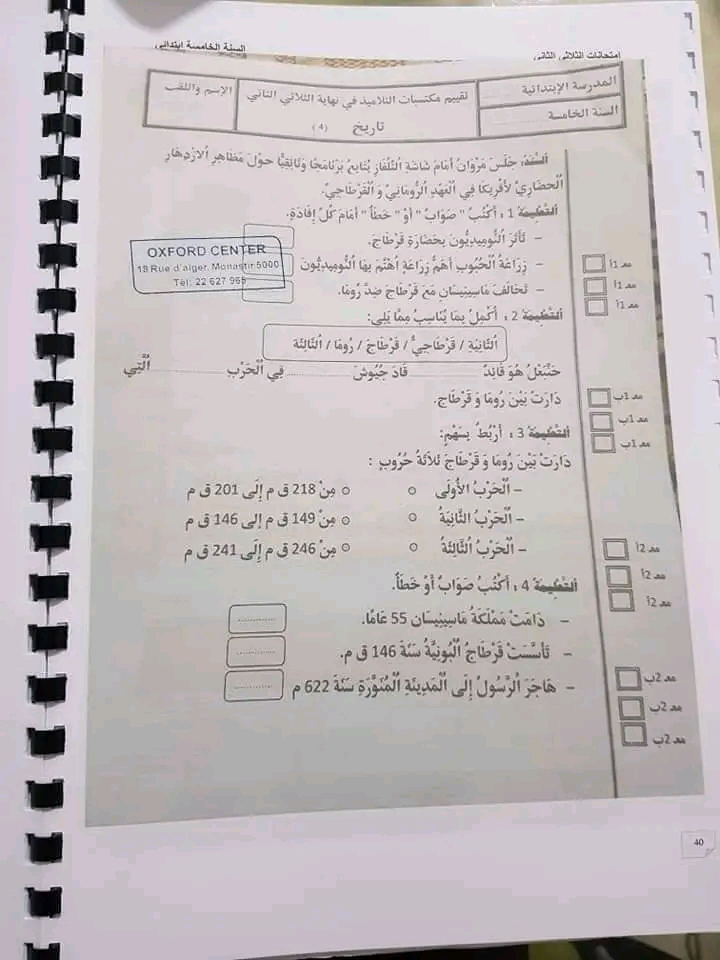 امتحانات الثلاثي الثاني
السنة الخامسة ابتدائي
المدرسة الإبتدائية
السنة الخامسة
تقييم مكتسبات التلاميذ في نهاية الثلاثي الثاني
تاريخ (4)
الإسم واللقب
السند: جَلَسَ مَرْوَانُ أَمَامَ شَاشَةِ التَّلْفَازِ يُتَابِعُ بَرْنَامَجًا وَثَائِقِيًّا حَوْلَ مَظَاهِرِ الِازْدِهَارِ
الْحَضَارِيِّ لِأَفْرِيكَا فِي الْعَهْدِ الرُّومَانِيِّ وَ الْقَرْطَاجِيِّ.
التعليمة 1 : أَكْتُبُ " صَوَابٌ " أَوْ " خَطَأٌ " أَمَامَ كُلِّ إِفَادَةٍ.
- تَأَثَّرَ النُّومِيدِيُّونَ بِحَضَارَةِ قَرْطَاجَ.
- زِرَاعَةُ الْحُبُوبِ أَهَمُّ زِرَاعَةٍ اُهْتَمَّ بِهَا النُّومِيدِيُّونَ
مع 1أ
- تَحَالَفَ مَاسِينِيسَانِ مَعَ قَرْطَاجَ ضِدَّ رُومَا.
مع 1أ
مع 1أ
OXFORD CENTER
18 Rue d'alger. Monastir 5000
Tél: 22 627 965
التعليمة 2 : أُكْمِلُ بِمَا يُنَاسِبُ مِمَّا يَلِي:
الثَّانِيَةِ / قَرْطَاجِيٌّ / قَرْطَاجَ / رُومَا / الثَّالِثَةِ
حَنَّبَعْلُ هُوَ قَائِدٌ ............ قَادَ جُيُوشَ ............ فِي الْحَرْبِ ............ الَّتِي
دَارَتْ بَيْنَ رُومَا وَ قَرْطَاج.
مع 1ب
مع 1ب
مع 1ب
التعليمة 3 : أَرْبُطُ بِسَهْمٍ:
دَارَتْ بَيْنَ رُومَا وَ قَرْطَاجَ ثَلَاثَةُ حُرُوبٍ :
- الْحَرْبُ الْأُولَى ○ ○ مِنْ 218 ق م إِلَى 201 ق م
- الْحَرْبُ الثَّانِيَةُ ○ ○ مِنْ 149 ق م إلى 146 ق م
- الْحَرْبُ الثَّالِثَةُ ○ ○ مِنْ 246 ق م إِلَى 241 ق م
مع 2أ
مع 2أ
مع 2أ
التعليمة 4 : أَكْتُبُ صَوَابٌ أَوْ خَطَأٌ.
- دَامَتْ مَمْلَكَةُ مَاسِينِيسَان 55 عَامًا. ............
- تَأَسَّسَتْ قَرْطَاجُ الْبُونِيَّةُ سَنَةَ 146 ق م. ............
- هَاجَرَ الرَّسُولُ إِلَى الْمَدِينَةِ الْمُنَوَّرَةِ سَنَةَ 622 م ............
مع 2ب
مع 2ب
مع 2ب
40